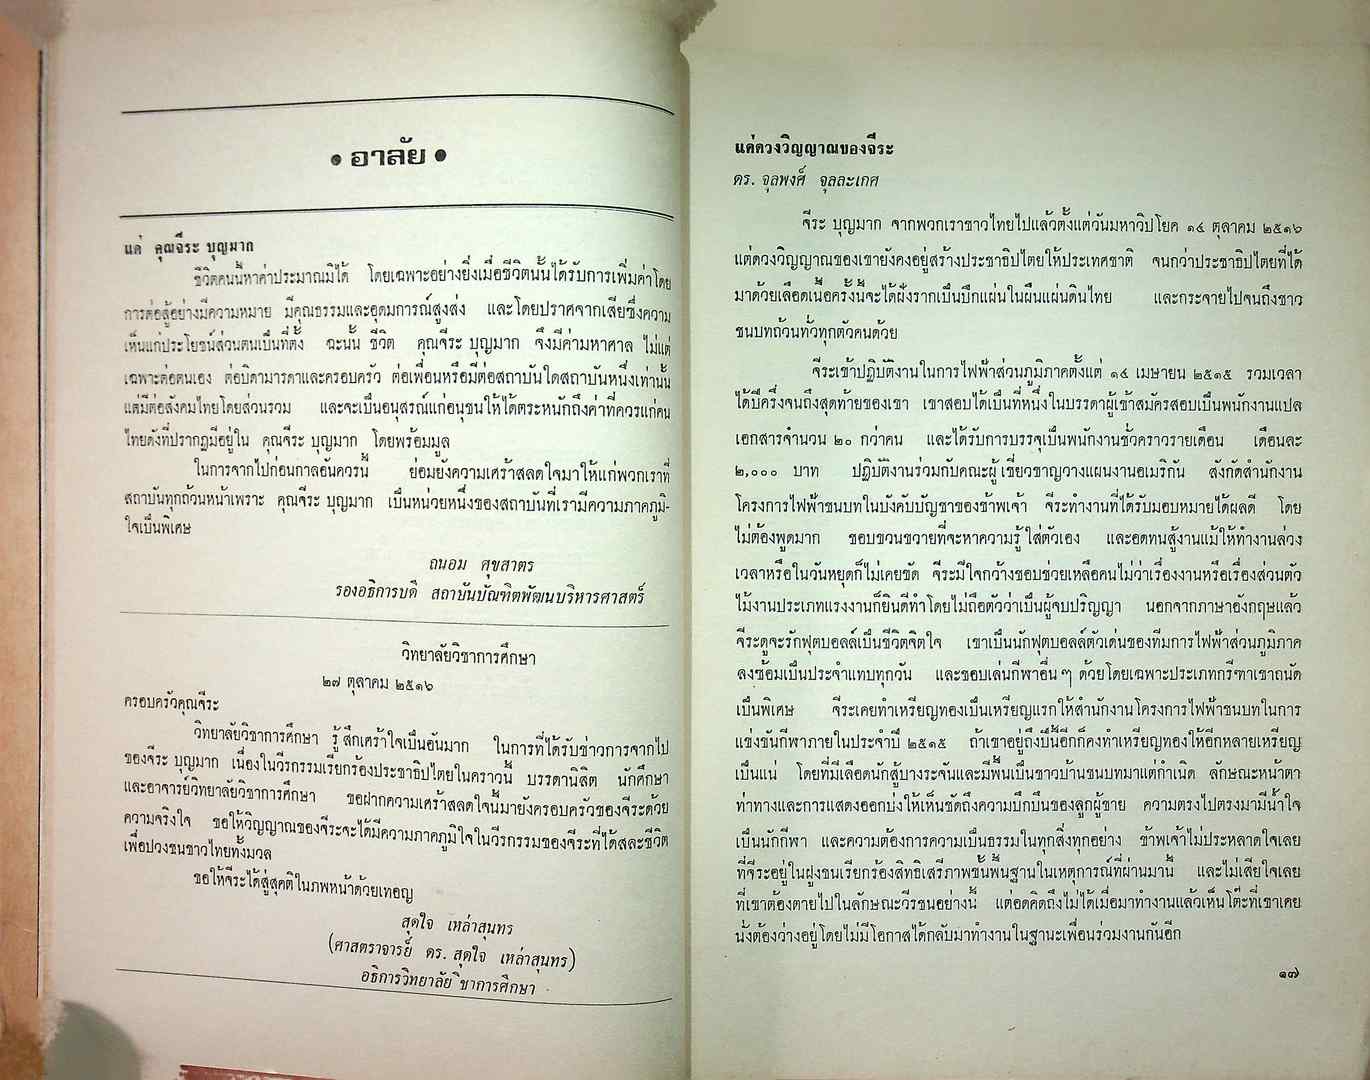 • อาลัย •
แด่ คุณจีระ บุญมาก
ชีวิตคนนี้หาค่าประมาณมิได้ โดยเฉพาะอย่างยิ่งเมื่อชีวิตนั้นได้รับการเพิ่มค่าโดย
การต่อสู้อย่างมีความหมาย มีคุณธรรมและอุดมการณ์สูงส่ง และโดยปราศจากเสียซึ่งความ
เห็นแก่ประโยชน์ส่วนตนเป็นที่ตั้ง ฉะนั้น ชีวิต คุณจีระ บุญมาก จึงมีค่ามหาศาล ไม่แต่
เฉพาะต่อตนเอง ต่อบิดามารดาและครอบครัว ต่อเพื่อนหรือมีต่อสถาบันใดสถาบันหนึ่งเท่านั้น
แต่มีต่อสังคมไทยโดยส่วนรวม และจะเป็นอนุสรณ์แก่อนุชนให้ได้ตระหนักถึงค่าที่ควรแก่คน
ไทยดังที่ปรากฏมีอยู่ใน คุณจีระ บุญมาก โดยพร้อมมูล
ในการจากไปก่อนกาลอันควรนี้ ย่อมยังความเศร้าสลดใจมาให้แก่พวกเราที่
สถาบันทุกถ้วนหน้าเพราะ คุณจีระ บุญมาก เป็นหน่วยหนึ่งของสถาบันที่เรามีความภาคภูมิ-
ใจเป็นพิเศษ
ถนอม ศุขสาตร
รองอธิการบดี สถาบันบัณฑิตพัฒนบริหารศาสตร์
วิทยาลัยวิชาการศึกษา
๒๗ ตุลาคม ๒๕๑๖
ครอบครัวคุณจีระ
วิทยาลัยวิชาการศึกษา รู้สึกเศร้าใจเป็นอันมาก ในการที่ได้รับข่าวการจากไป
ของจีระ บุญมาก เนื่องในวีรกรรมเรียกร้องประชาธิปไตยในคราวนี้ บรรดานิสิต นักศึกษา
และอาจารย์วิทยาลัยวิชาการศึกษา ขอฝากความเศร้าสลดใจนี้มายังครอบครัวของจีระด้วย
ความจริงใจ ขอให้วิญญาณของจีระจะได้มีความภาคภูมิใจในวีรกรรมของจีระที่ได้สละชีวิต
เพื่อปวงชนชาวไทยทั้งมวล
ขอให้จีระได้สู่สุคติในภพหน้าด้วยเทอญ
สุดใจ เหล่าสุนทร
(ศาสตราจารย์ ดร. สุดใจ เหล่าสุนทร)
อธิการวิทยาลัยวิชาการศึกษา
แด่ดวงวิญญาณของจีระ
ดร. จุลพงศ์ จุลละเกศ
จีระ บุญมาก จากพวกเราชาวไทยไปแล้วตั้งแต่วันมหาวิปโยค ๑๔ ตุลาคม ๒๕๑๖
แต่ดวงวิญญาณของเขายังคงอยู่สร้างประชาธิปไตยให้ประเทศชาติ จนกว่าประชาธิปไตยที่ได้
มาด้วยเลือดเนื้อครั้งนี้จะได้ฝังรากเป็นปึกแผ่นในผืนแผ่นดินไทย และกระจายไปจนถึงชาว
ชนบทถ้วนทั่วทุกตัวคนด้วย
จีระเข้าปฏิบัติงานในการไฟฟ้าส่วนภูมิภาคตั้งแต่ ๑๔ เมษายน ๒๕๑๕ รวมเวลา
ได้ปีครึ่งจนถึงสุดท้ายของเขา เขาสอบได้เป็นที่หนึ่งในบรรดาผู้เข้าสมัครสอบเป็นพนักงานแปล
เอกสารจำนวน ๒๐ กว่าคน และได้รับการบรรจุเป็นพนักงานชั่วคราวรายเดือน เดือนละ
๒,๐๐๐ บาท ปฏิบัติงานร่วมกับคณะผู้เชี่ยวชาญวางแผนงานอเมริกัน สังกัดสำนักงาน
โครงการไฟฟ้าชนบทในบังคับบัญชาของข้าพเจ้า จีระทำงานที่ได้รับมอบหมายได้ผลดี โดย
ไม่ต้องพูดมาก ชอบขวนขวายที่จะหาความรู้ใส่ตัวเอง และอดทนสู้งานแม้ให้ทำงานล่วง
เวลาหรือในวันหยุดก็ไม่เคยขัด จีระมีใจกว้างชอบช่วยเหลือคนไม่ว่าเรื่องงานหรือเรื่องส่วนตัว
ไม้งานประเภทแรงงานก็ยินดีทำโดยไม่ถือตัวว่าเป็นผู้จบปริญญา นอกจากภาษาอังกฤษแล้ว
จีระดูจะรักฟุตบอลล์เป็นชีวิตจิตใจ เขาเป็นนักฟุตบอลล์ตัวเด่นของทีมการไฟฟ้าส่วนภูมิภาค
ลงซ้อมเป็นประจำแทบทุกวัน และชอบเล่นกีฬาอื่น ๆ ด้วยโดยเฉพาะประเภทกรีฑาเขาถนัด
เป็นพิเศษ จีระเคยทำเหรียญทองเป็นเหรียญแรกให้สำนักงานโครงการไฟฟ้าชนบทในการ
แข่งขันกีฬาภายในประจำปี ๒๕๑๕ ถ้าเขาอยู่ถึงปีนี้อีกก็คงทำเหรียญทองให้อีกหลายเหรียญ
เป็นแน่ โดยที่มีเลือดนักสู้บางระจันและมีพื้นเป็นชาวบ้านชนบทมาแต่กำเนิด ลักษณะหน้าตา
ท่าทางและการแสดงออกบ่งให้เห็นชัดถึงความบึกบึนของลูกผู้ชาย ความตรงไปตรงมามีน้ำใจ
เป็นนักกีฬา และความต้องการความเป็นธรรมในทุกสิ่งทุกอย่าง ข้าพเจ้าไม่ประหลาดใจเลย
ที่จีระอยู่ในฝูงชนเรียกร้องสิทธิเสรีภาพขั้นพื้นฐานในเหตุการณ์ที่ผ่านมานี้ และไม่เสียใจเลย
ที่เขาต้องตายไปในลักษณะวีรชนอย่างนี้ แต่อดคิดถึงไม่ได้เมื่อมาทำงานแล้วเห็นโต๊ะที่เขาเคย
นั่งต้องว่างอยู่โดยไม่มีโอกาสได้กลับมาทำงานในฐานะเพื่อนร่วมงานกันอีก
๑๗